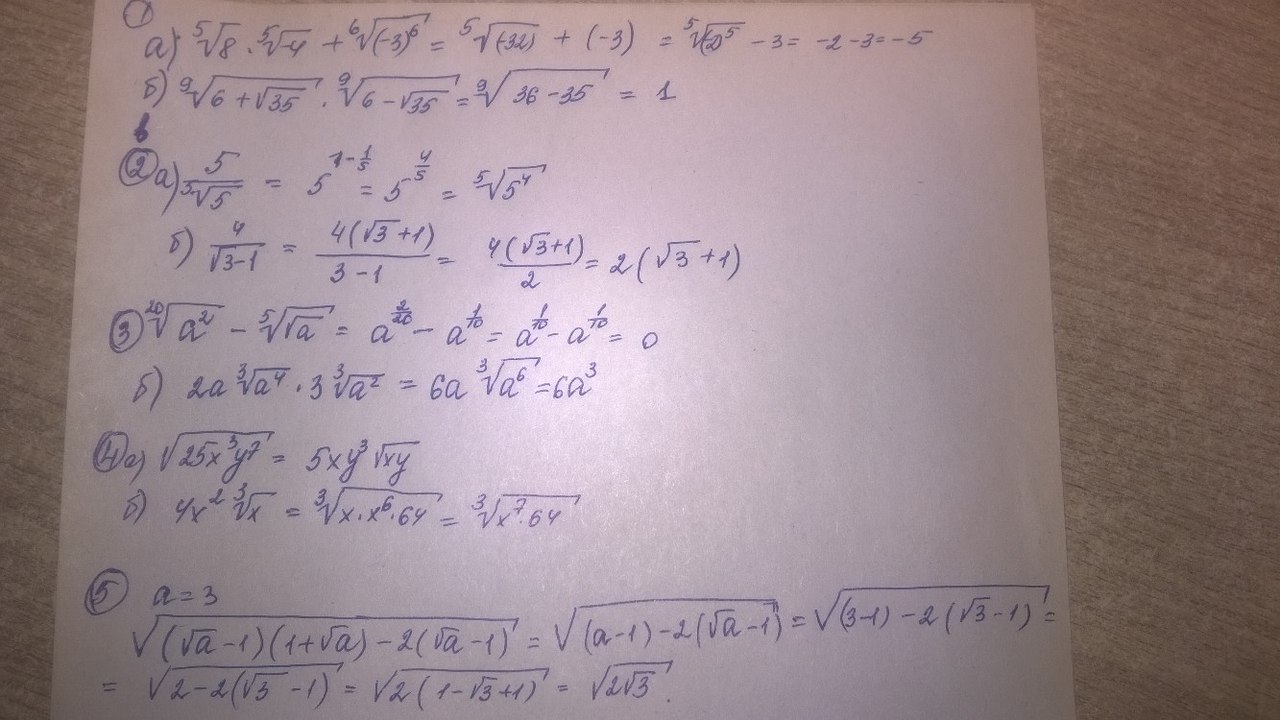 1
а) ⁵√8 · ⁵√-4 + ⁶√(-3)⁶ = ⁵√(-32) + (-3) = ⁵√(-2)⁵ - 3 = -2 - 3 = -5
б) ⁹√(6 + √35) · ⁹√(6 - √35) = ⁹√(36 - 35) = 1
в
2 а) 5/⁵√5 = 5^(1-1/5) = 5^(4/5) = ⁵√5⁴
б) 4/(√3-1) = 4(√3+1)/(3-1) = 4(√3+1)/2 = 2(√3+1)
3 ²⁰√a² - ⁵√√a = a^(2/20) - a^(1/10) = a^(1/10) - a^(1/10) = 0
б) 2a ³√a⁴ · 3 ³√a² = 6a ³√a⁶ = 6a³
4 а) √(25x³y⁷) = 5xy³√xy
б) 4x² ³√x = ³√(x·x⁶·64) = ³√(x⁷·64)
5 a = 3
√((√a-1)(1+√a) - 2(√a-1)) = √((a-1) - 2(√a-1)) = √((3-1) - 2(√3-1)) =
= √(2-2(√3-1)) = √(2(1-√3+1)) = √(2√3).